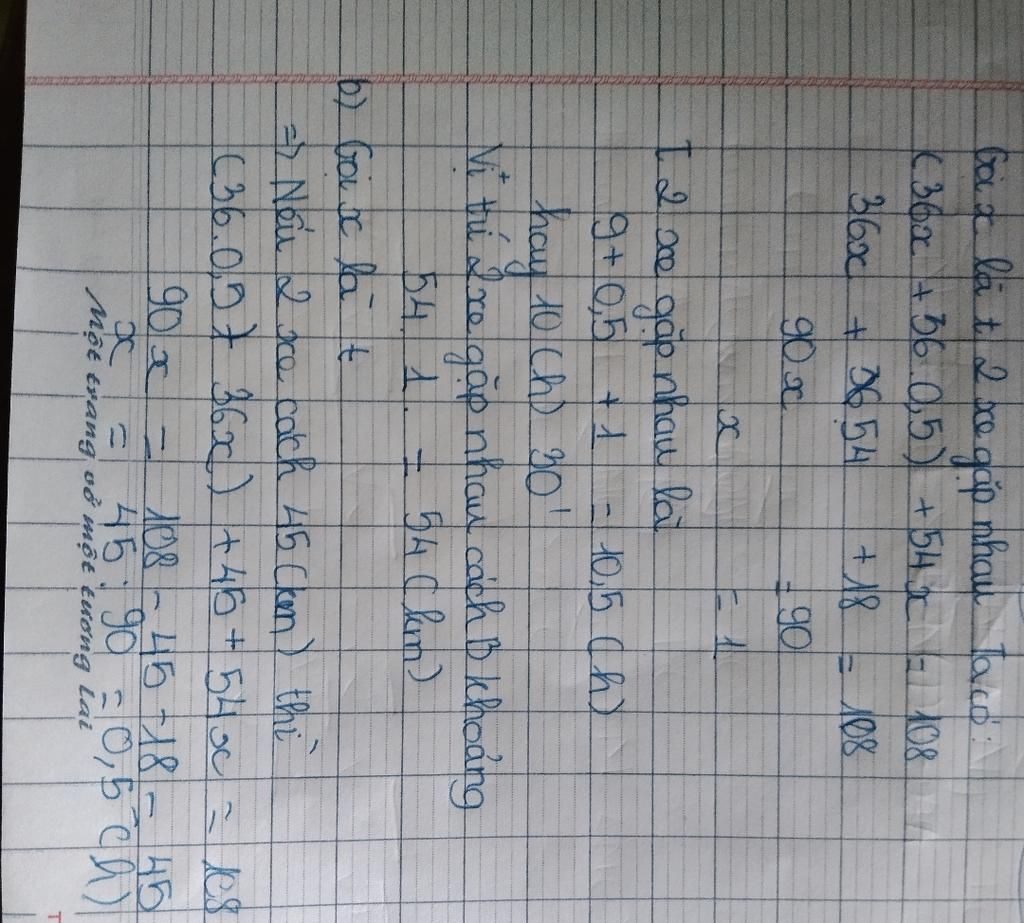 Gọi x là t 2 xe gặp nhau Ta có:
(36x + 36.0,5) + 54x = 108
36x + 54 + 18 = 108
90x = 90
x = 1
T 2 xe gặp nhau là
9 + 0,5 + 1 = 10,5 (h)
hay 10 (h) 30'
Vị trí 2 xe gặp nhau cách B khoảng
54. 1. = 54 (km)
b) Gọi x là t
=> Nếu 2 xe cách 45 (km) thì
(36.0,5 + 36x) + 45 + 54x = 108
90x = 108 - 45 - 18 = 45
x = 45:90 = 0,5 (h)
Một trang vở một tương lai